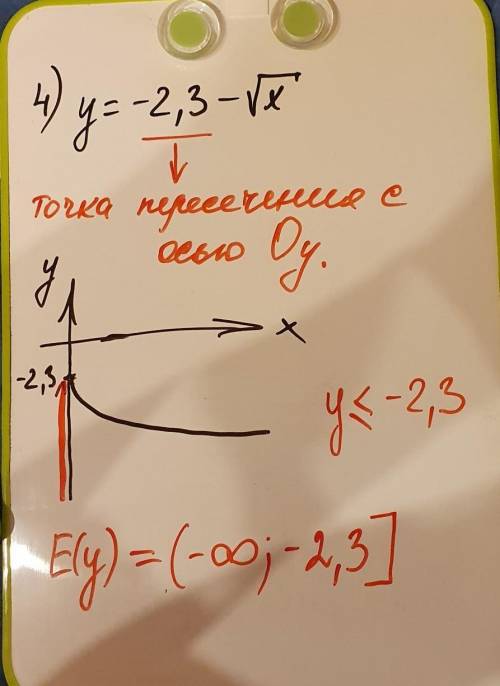 4) y = -2,3 - √x
точка пересечения с
осью Oy.
y
x
-2,3
y ≤ -2,3
E(y) = (-∞; -2,3]